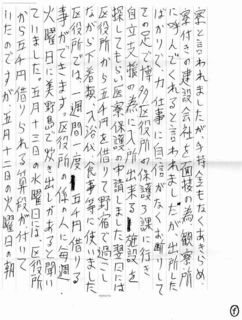 寮と言われましたが手持金もなくあきらめ
寮付きの建設会社を面接の為、観察所
に呼んでくれると言われましたが出所した
ばかりで力仕事に自信がなくお断りして
その足で博多区役所の保護3課に行き
自立支援の為に入所する施設を
探してもらい医療保護の申請しました翌日には
区役所から五千円を借りて野宿で過ごし
ながら下着類、入浴代、食事等に使いました
区役所では、一週間一度五千円借りる
事ができます。区役所の係の人に毎週
火曜日に美野島で炊き出しがあると聞い
ていました。五月十三日の水曜日は、区役所
から五千円借りられる算段が付いて
いたのですが五月十二日の火曜日の朝